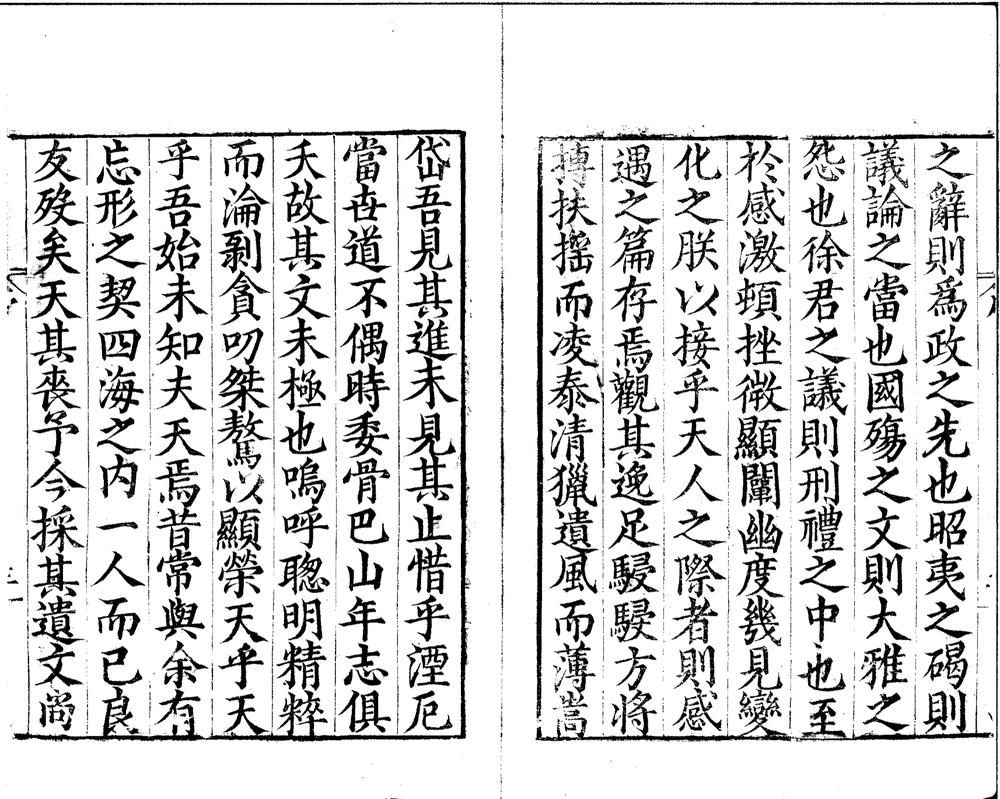 之辭則爲政之先也昭夷之碣則
議論之當也國殤之文則大雅之
怨也徐君之議則刑禮之中也至
於感激頓挫微顯闡幽度幾見變
化之朕以接乎天人之際者則感
遇之篇存焉觀其逸足駸駸方將
摶扶揺而凌泰清獵遺風而薄嵩
岱吾見其進未見其止惜乎湮厄
當丗道不偶時委骨巴山年志俱
夭故其文未極也嗚呼聦明精粹
而淪剥貪叨桀驁以顯榮天乎天
乎吾始未知夫天焉昔常與余有
忘形之契四海之内一人而已良
友殁矣天其喪予今採其遺文尚